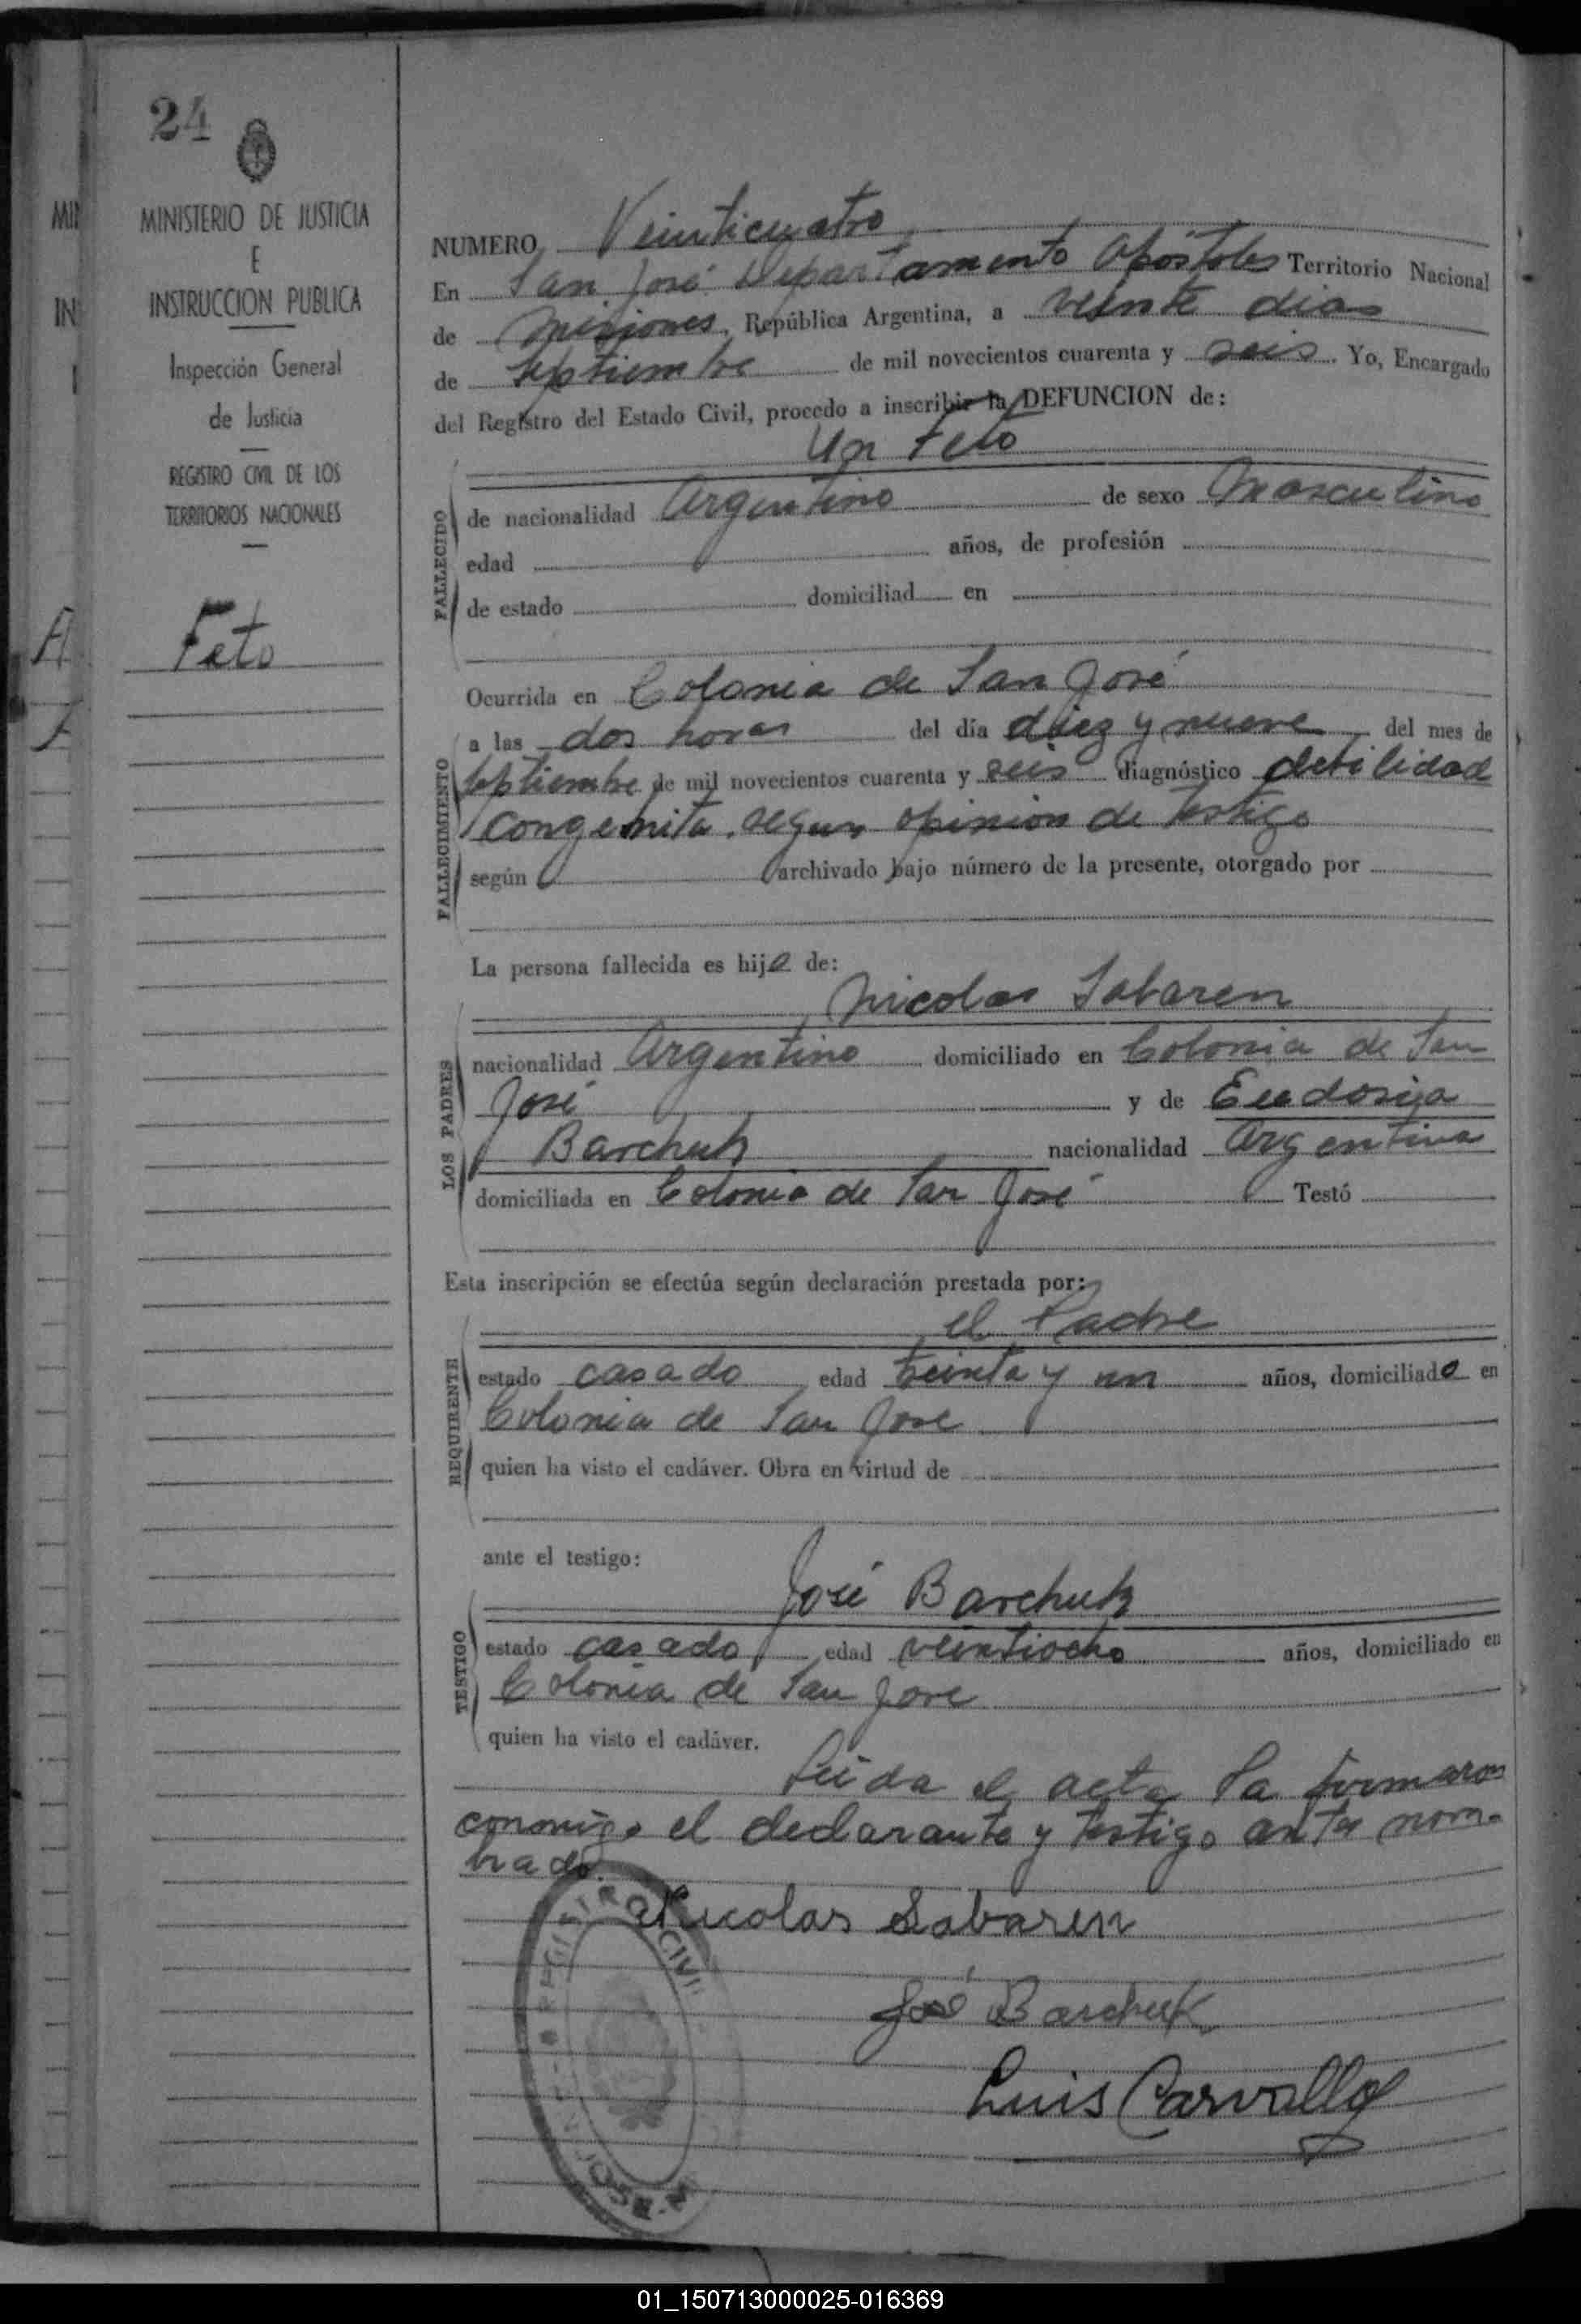 24
MINISTERIO DE JUSTICIA
E
INSTRUCCION PUBLICA
Inspección General
de Justicia
REGISTRO CIVIL DE LOS
TERRITORIOS NACIONALES
Feto
NUMERO Veinticuatro
En San José Departamento Apóstoles Territorio Nacional
de Misiones, República Argentina, a veinte dias
de septiembre de mil novecientos cuarenta y seis. Yo, Encargado
del Registro del Estado Civil, procedo a inscribir la DEFUNCION de:
Un feto
FALLECIDO
de nacionalidad Argentino de sexo Masculino
edad años, de profesión
de estado domiciliad en
Ocurrida en Colonia de San José
FALLECIMIENTO
a las dos horas del día diez y nueve del mes de
septiembre de mil novecientos cuarenta y seis diagnóstico debilidad
congenita, segun opinion de testigo
según archivado bajo número de la presente, otorgado por
La persona fallecida es hijo de:
Nicolas Sabaren
LOS PADRES
nacionalidad Argentino domiciliado en Colonia de San
José y de Eudosia
Barchuk nacionalidad Argentina
domiciliada en Colonia de San José Testó
Esta inscripción se efectúa según declaración prestada por:
el Padre
REQUIRENTE
estado casado edad treinta y un años, domiciliado en
Colonia de San José
quien ha visto el cadáver. Obra en virtud de
ante el testigo:
José Barchuk
TESTIGO
estado casado edad veintiocho años, domiciliado en
Colonia de San José
quien ha visto el cadáver.
Leida el acta la firmaron
conmigo el declarante y testigo antes nom-
brado.
Nicolas Sabaren
José Barchuk
Luis Carvallo
REGISTRO CIVIL
SAN JOSE
01_150713000025-016369